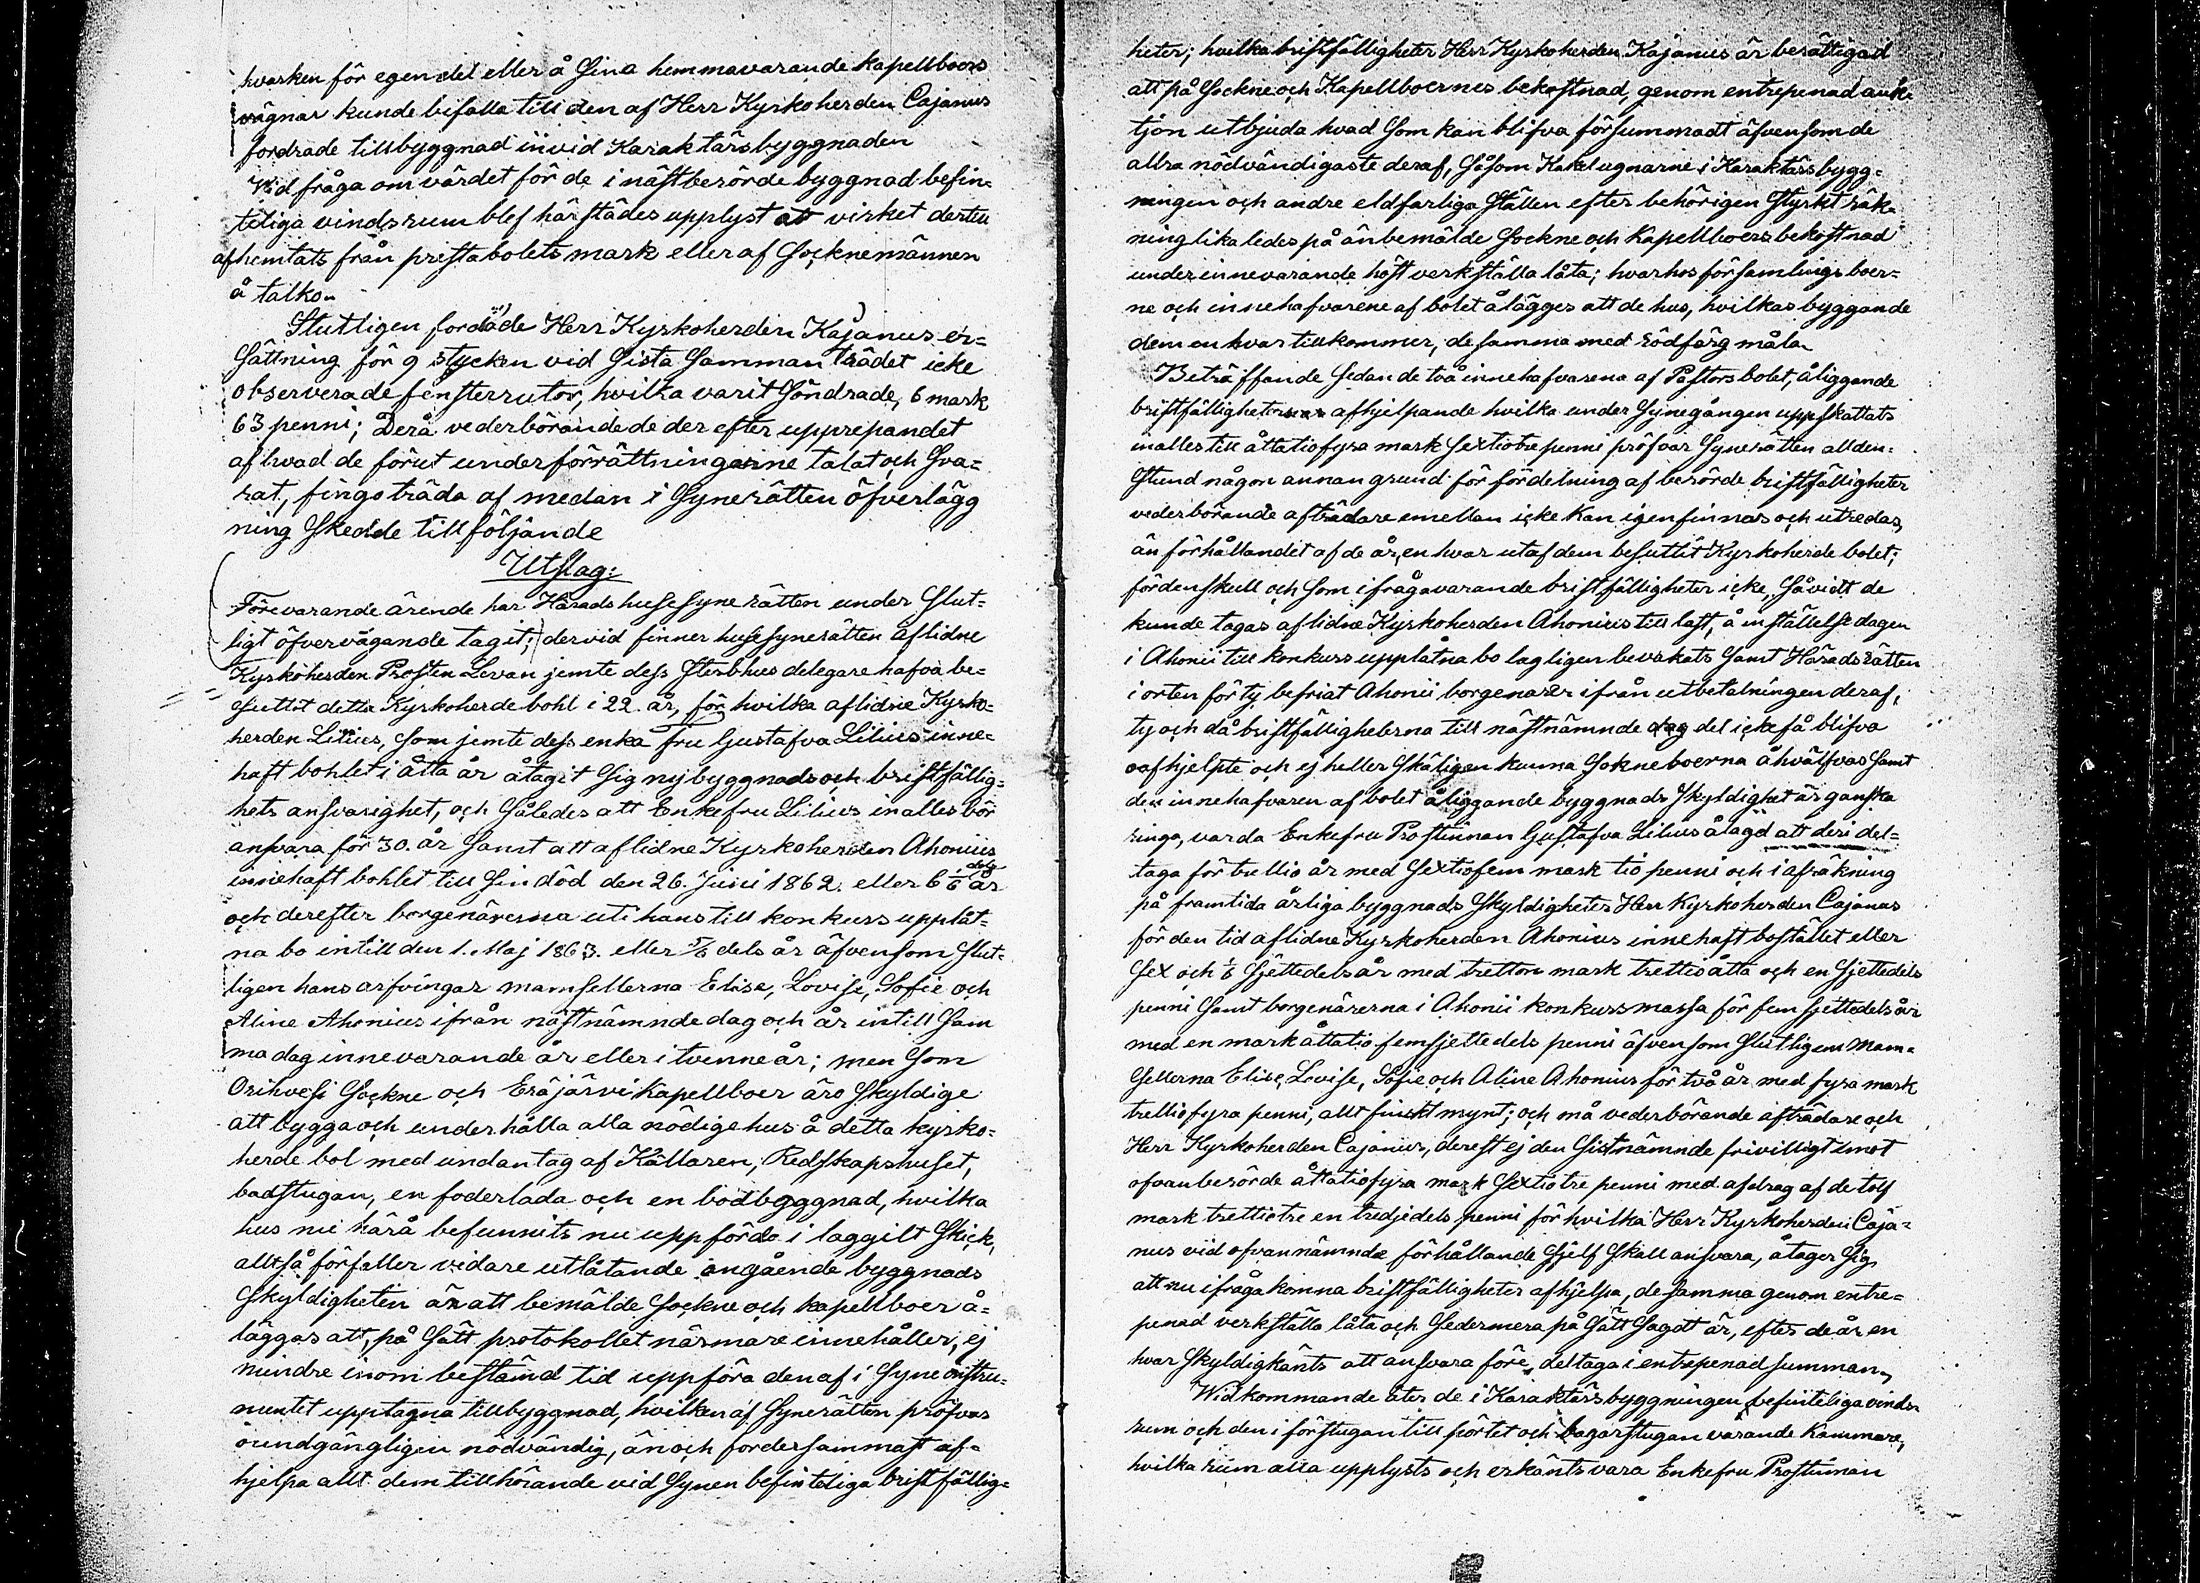 hvarken för egen del eller å Sina hemmavarande Kapellboers
vägnar kunde bifalla till den af Herr Kyrkoherden Cajanus
fordrade tillbyggnad invid Karaktärsbyggnaden
Vid fråga om värdet för de i näst berörde byggnad befin-
teliga vindsrum blef härstädes upplyst att virket dertill
afhemtats från prestabolets mark eller af Socknemännen
å talko.
Slutligen fordrade Herr Kyrkoherden Kajanus er-
sättning för 9 stycken vid Sista Sammanträdet icke
observerade fensterrutor, hvilka varit Söndrade, 6 mark
63 penni; Derå vederbörande der efter upprepandet
af hvad de förut under förrättningarne talat och Sva-
rat, fingo träda af medan i Synerätten öfverlägg
ning Skedde till följande
Utslag:
Förevarande ärende har Härads husesyne rätten under Slut-
ligt öfvervägande tagit; dervid finner husesynerätten aflidne
Kyrkoherden Prosten Levan jemte dess Sterbhus delegare hafva be-
suttit detta Kyrkoherde bohl i 22. år, för hvilka aflidne Kyrko-
herden Lilius, som jemte dess enka Fru Gustafva Lilius inne-
haft bohlet i åtta år åtagit Sig nybyggnads och bristfällig-
hets ansvarighet, och Således att Enkefru Lilius inalles bör
ansvara för 30. år Samt att aflidne Kyrkoherden Ahonius
innehaft bohlet till Sin död den 26. Juni 1862. eller 6 1/6 dels år
och derefter borgenärerna uti hans till konkurs upplåt-
na bo intill den 1. Maj 1863. eller 5/6 dels år äfvensom Slut-
ligen hans arfvingar mamsellerna Elise, Lovise, Sofie och
Aline Ahonius ifrån nästnämnde dag och år intill Sam
ma dag innevarande år eller i tvenne år; men Som
Orihvesi Sockne och Eräjärvi Kapellboer äro Skyldige
att bygga och underhålla alla nödige hus å detta kyrko-
herde bol med undantag af Källaren, Redskapshuset,
badstugan, en foderlada och en bodbyggnad, hvilka
hus nu härå befunnits nu uppförda i laggilt Skick,
alltså förfaller vidare utlåtande angående byggnads
Skyldigheten än att bemälde Sockne och kapellboer å-
läggas att, på Sätt protokollet närmare innehåller, ej
mindre inom bestämd tid uppföra den af i Syne instru-
mentet upptagna tillbyggnad, hvilken af Synerätten pröfvas
oundgängligen nödvändig, än och fordersammast af-
hjelpa allt dem tillhörande vid Synen befinteliga bristfällig-
heter; hvilka bristfälligheter Herr Kyrkoherden Kajanus är berättigad
att på Sockne och Kapellboernes bekostnad, genom entrepenad auk-
tjon utbjuda hvad Som kan blifva försummadt äfvensom de
allra nödvändigaste deraf, Såsom Kakelugnarne i Karaktärsbygg-
ningen och andre eldfarliga Ställen efter behörigen Styrkt räk-
ning likaledes på änbemälde Sockne och Kapellboers bekostnad
under innevarande höst verkställa låta; hvarhos församlingsboer-
ne och innehafvarene af bolet ålägges att de hus, hvilkas byggande
dem en hvar tillkommer, de samma med rödfärg måla
Beträffande Sedan de två innehafvarena af Pastorsbolet, åliggande
bristfälligheternas afhjelpande hvilka under Synegången uppskattats
inalles till åttatiofyra mark Sextiotre penni pröfvar Synerätten allden-
Stund någon annan grund för fördelning af berörde bristfälligheter
vederbörande afträdare emellan icke kan igenfinnas och utredas,
än förhållandet af de år, en hvar utaf dem besuttit Kyrkoherde bolet;
fördenskull och Som ifrågavarande bristfälligheter icke, Såvidt de
kunde tagas aflidne Kyrkoherden Ahonius till last, å inställelsedagen
i Ahonii till konkurs upplåtna bo lagligen bevakats Samt Häradsrätten
i orten förty befriat Ahonii borgenärer ifrån utbetalningen deraf,
ty och då bristfälligheterna till nästnämnde del icke få blifva
oafhjelpte och ej heller Skäligen kunna Sokneboerna åhvälfvas Samt
den innehafvaren af bolet åliggande byggnads Skyldighet är ganska
ringa, varda Enkefru Prostinnan Gustafva Lilius ålagd att deri del-
taga för trettio år med Sextiofem mark tio penni och i afräkning
på framtida årliga byggnads Skyldigheter Herr Kyrkoherden Cajanus
för den tid aflidne Kyrkoherden Ahonius innehaft bostället eller
Sex och 1/6 Sjettedels år med tretton mark trettioåtta och en Sjettedels
penni Samt borgenärerna i Ahonii konkursmassa för fem sjettedels år
med en mark åttatio femsjettedels penni äfvensom Slutligen Mam-
Sellerna Elise, Lovise, Sofie och Aline Ahonius för två år med fyra mark
trettiofyra penni, allt finskt mynt; och må vederbörande afträdare och
Herr Kyrkoherden Cajanus, derest ej den Sistnämnde frivilligt emot
ofvanberörde åttatiofyra mark Sextiotre penni med afdrag af de tolf
mark trettiotre en tredjedels penni för hvilka Herr Kyrkoherden Caja-
nus vid ofvannämnde förhållande Sjelf Skall ansvara, åtager Sig,
att nu ifrågakomna bristfälligheter afhjelpa, de samma genom entre-
penad verkställa låta och Sedermera på Sätt Sagdt är, efter de år en
hvar Skyldigkänts att ansvara före, deltaga i entrepenad summan,
Widkommande åter de i Karaktärsbyggningen befinteliga vinds-
rum och den i förstugan till pörtet och bagarstugan varande Kammare,
hvilka rum alla upplysts och erkänts vara Enkefru Prostinnan